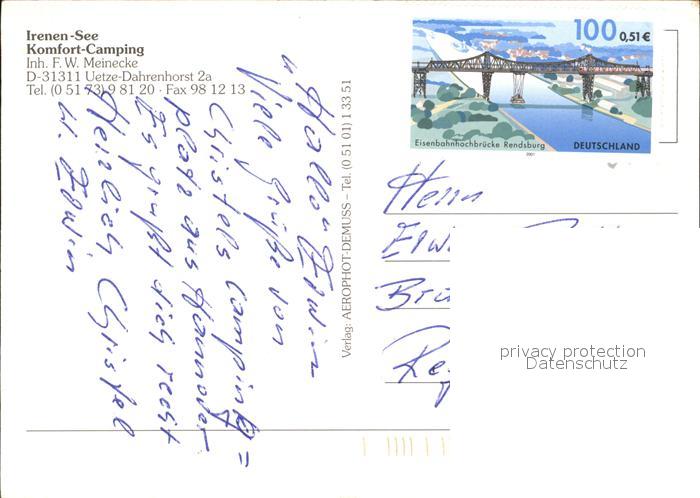 Irenen-See
Komfort-Camping
Inh. F. W. Meinecke
D-31311 Uetze-Dahrenhorst 2a
Tel. (0 51 73) 9 81 20 · Fax 98 12 13
100 0,51 €
Eisenbahnhochbrücke Rendsburg
DEUTSCHLAND
2001
Verlag: AEROPHOT-DEMUSS – Tel. (0 51 01) 1 33 51
Hallo Erwin
Viele Grüße von
Christels Camping=
platz aus Hannover
Es grüßt dich recht
Herzlich Christel
u. Erwin
Herrn
privacy protection
Datenschutz